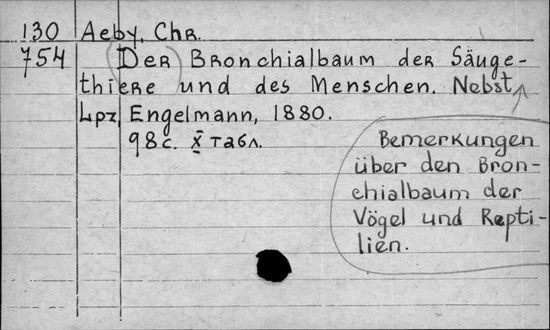 130 Aeby, Chr.
754 Der Bronchialbaum der Säuge-
thiere und des Menschen. Nebst
Lpz, Engelmann, 1880.
98 с. X табл.
Bemerkungen
über den Bron-
chialbaum der
Vögel und Repti-
lien.